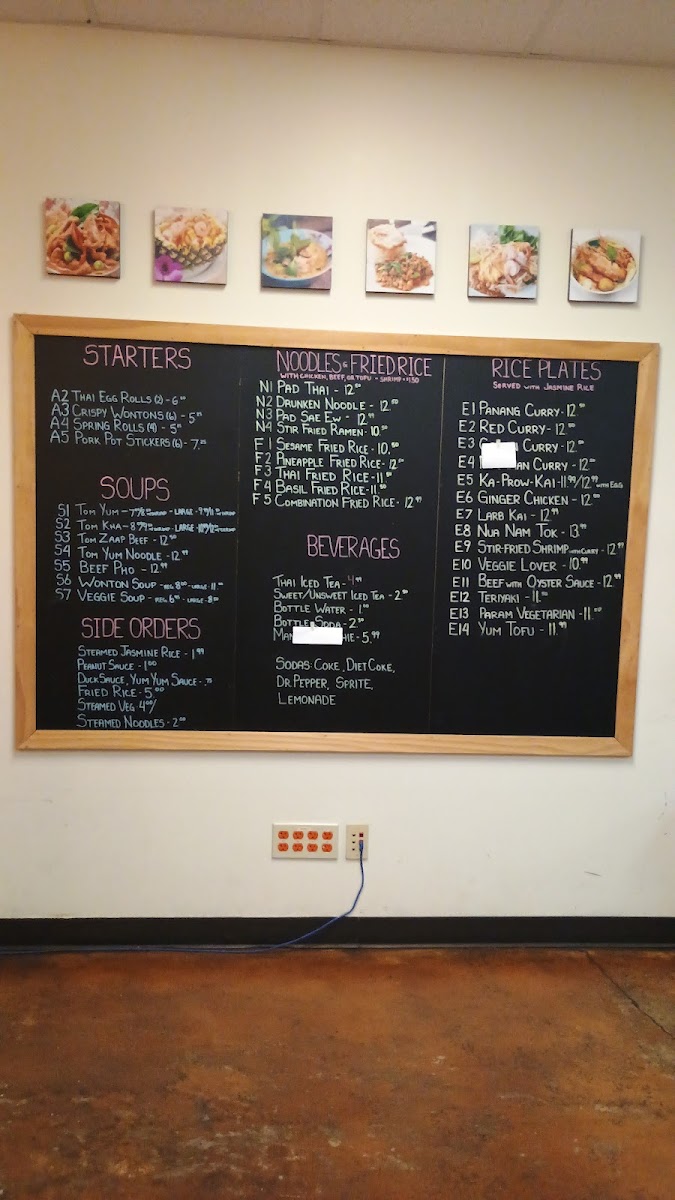 STARTERS
A2 THAI EGG ROLLS (2) - 6.
A3 CRISPY WONTONS (6) - 5.
A4 SPRING ROLLS (4) - 5.
A5 PORK POT STICKERS (6) - 7.
SOUPS
S1 TOM YUM - LARGE -
S2 TOM KHA - LARGE -
S3 TOM ZAAP BEEF - 12.
S4 TOM YUM NOODLE - 12.99
S5 BEEF PHO - 12.99
S6 WONTON SOUP - REG. 8.00 - LARGE - 11.
S7 VEGGIE SOUP - REG. 6. - LARGE - 8.
SIDE ORDERS
STEAMED JASMINE RICE - 1.99
PEANUT SAUCE - 1.00
DUCK SAUCE, YUM YUM SAUCE - .75
FRIED RICE - 5.00
STEAMED VEG 4.00/
STEAMED NOODLES - 2.00
NOODLES & FRIED RICE
WITH CHICKEN, BEEF, OR TOFU - SHRIMP + $1.50
N1 PAD THAI - 12.
N2 DRUNKEN NOODLE - 12.
N3 PAD SAE EW - 12.99
N4 STIR FRIED RAMEN - 10.
F1 SESAME FRIED RICE - 10.
F2 PINEAPPLE FRIED RICE - 12.
F3 THAI FRIED RICE - 11.
F4 BASIL FRIED RICE - 11.
F5 COMBINATION FRIED RICE - 12.99
BEVERAGES
THAI ICED TEA - 4.99
SWEET/UNSWEET ICED TEA - 2.
BOTTLE WATER - 1.00
BOTTLE SODA - 2.
5.99
SODAS: COKE, DIET COKE,
DR. PEPPER, SPRITE,
LEMONADE
RICE PLATES
SERVED WITH JASMINE RICE
E1 PANANG CURRY - 12.
E2 RED CURRY - 12.
E3 CURRY - 12.
E4 CURRY - 12.
E5 KA-PROW-KAI - 11.99/12.99 WITH EGG
E6 GINGER CHICKEN - 12.
E7 LARB KAI - 12.99
E8 NUA NAM TOK - 13.99
E9 STIR-FRIED SHRIMP WITH CURRY - 12.99
E10 VEGGIE LOVER - 10.99
E11 BEEF WITH OYSTER SAUCE - 12.99
E12 TERIYAKI - 11.
E13 PARAM VEGETARIAN - 11.
E14 YUM TOFU - 11.99